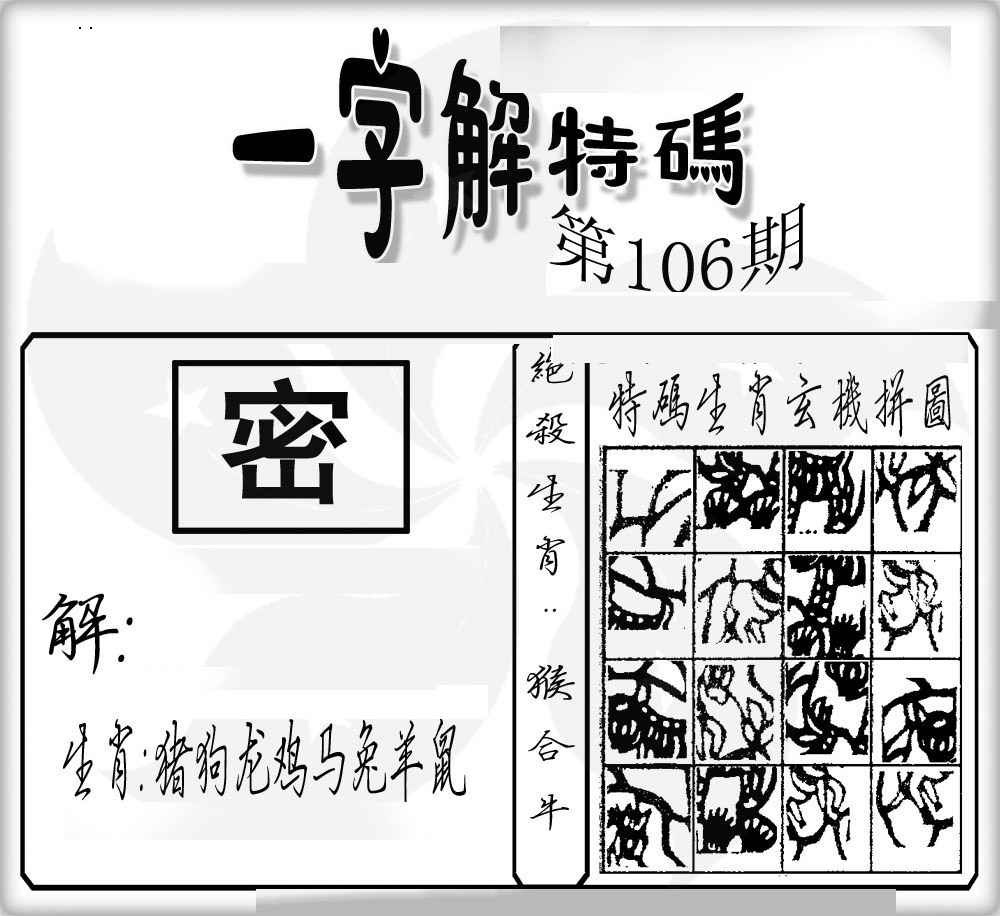 一字解特碼
第106期
密
解:
生肖:猪狗龙鸡马兔羊鼠
絶殺生肖:猴合牛
特碼生肖玄機拼圖